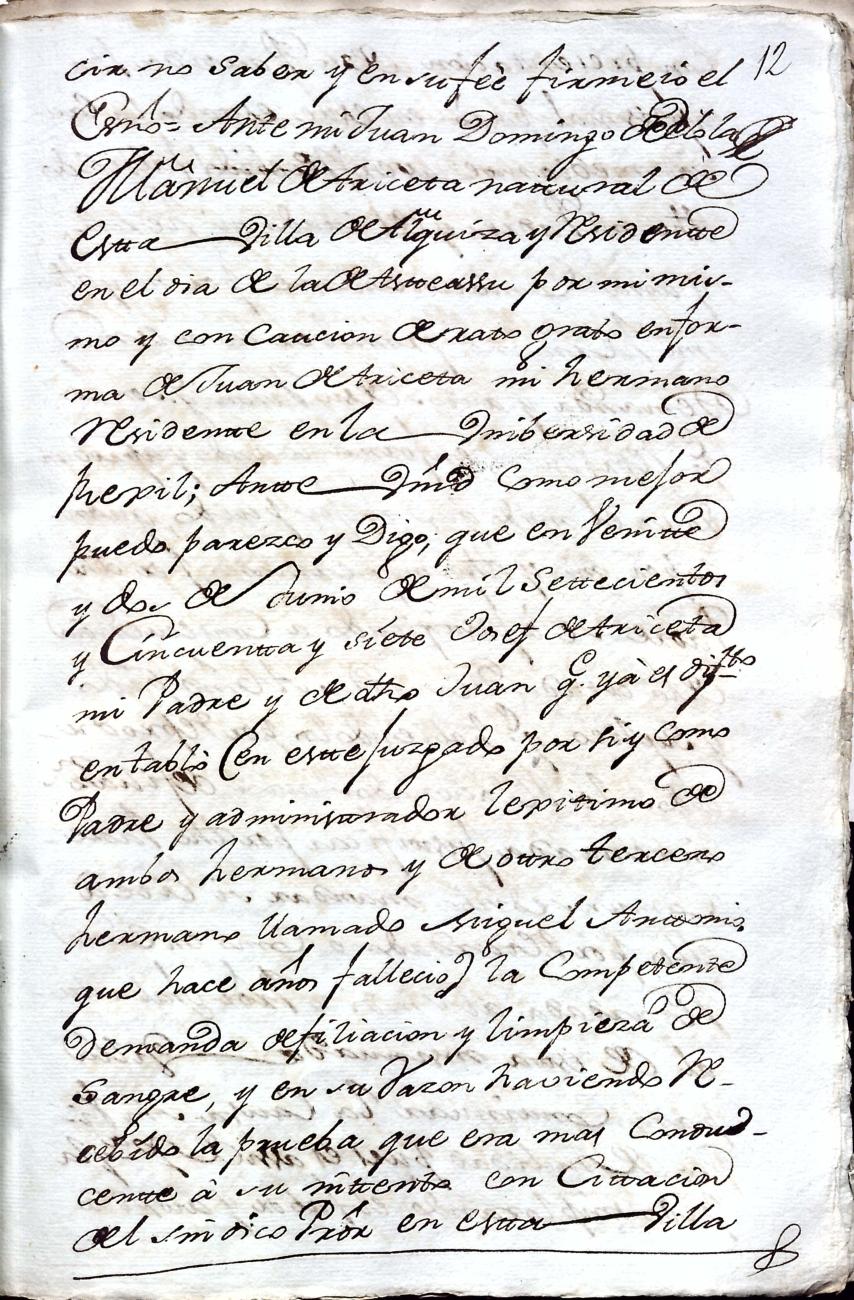 12
cir no saber y en su fee firmeió el
Esno= Ante mi Juan Domingo de
Manuel de Ariceta natural de
estta Villa de Alquiza y Residentte
en el dia de la de Astteassu por mi mis-
mo y con Caucion de rato grato en for-
ma de Juan de Ariceta mi hermano
Residentte en la Unibersidad de
hexnil; Antte Vmd Como mejor
puedo parezco y Digo, que en Veintte
y dos de Junio de mil Settecientos
y Cincuentta y siete Josef de Ariceta
mi Padre y de dho Juan q. yà es diftto
entablò (en estte Juzgado por si y como
Padre y administtrador lexitimo de
ambos hermanos y de ottro tercero
hermano llamado Miguel Anttonio
que hace años fallecio) la Competente
Demanda de filiacion y limpieza de
Sangre, y en su Razon haviendo Re-
cebido la prueba que era mas Condu-
centte à su inttentto con Cittacion
del sindico Prór en estta Villa